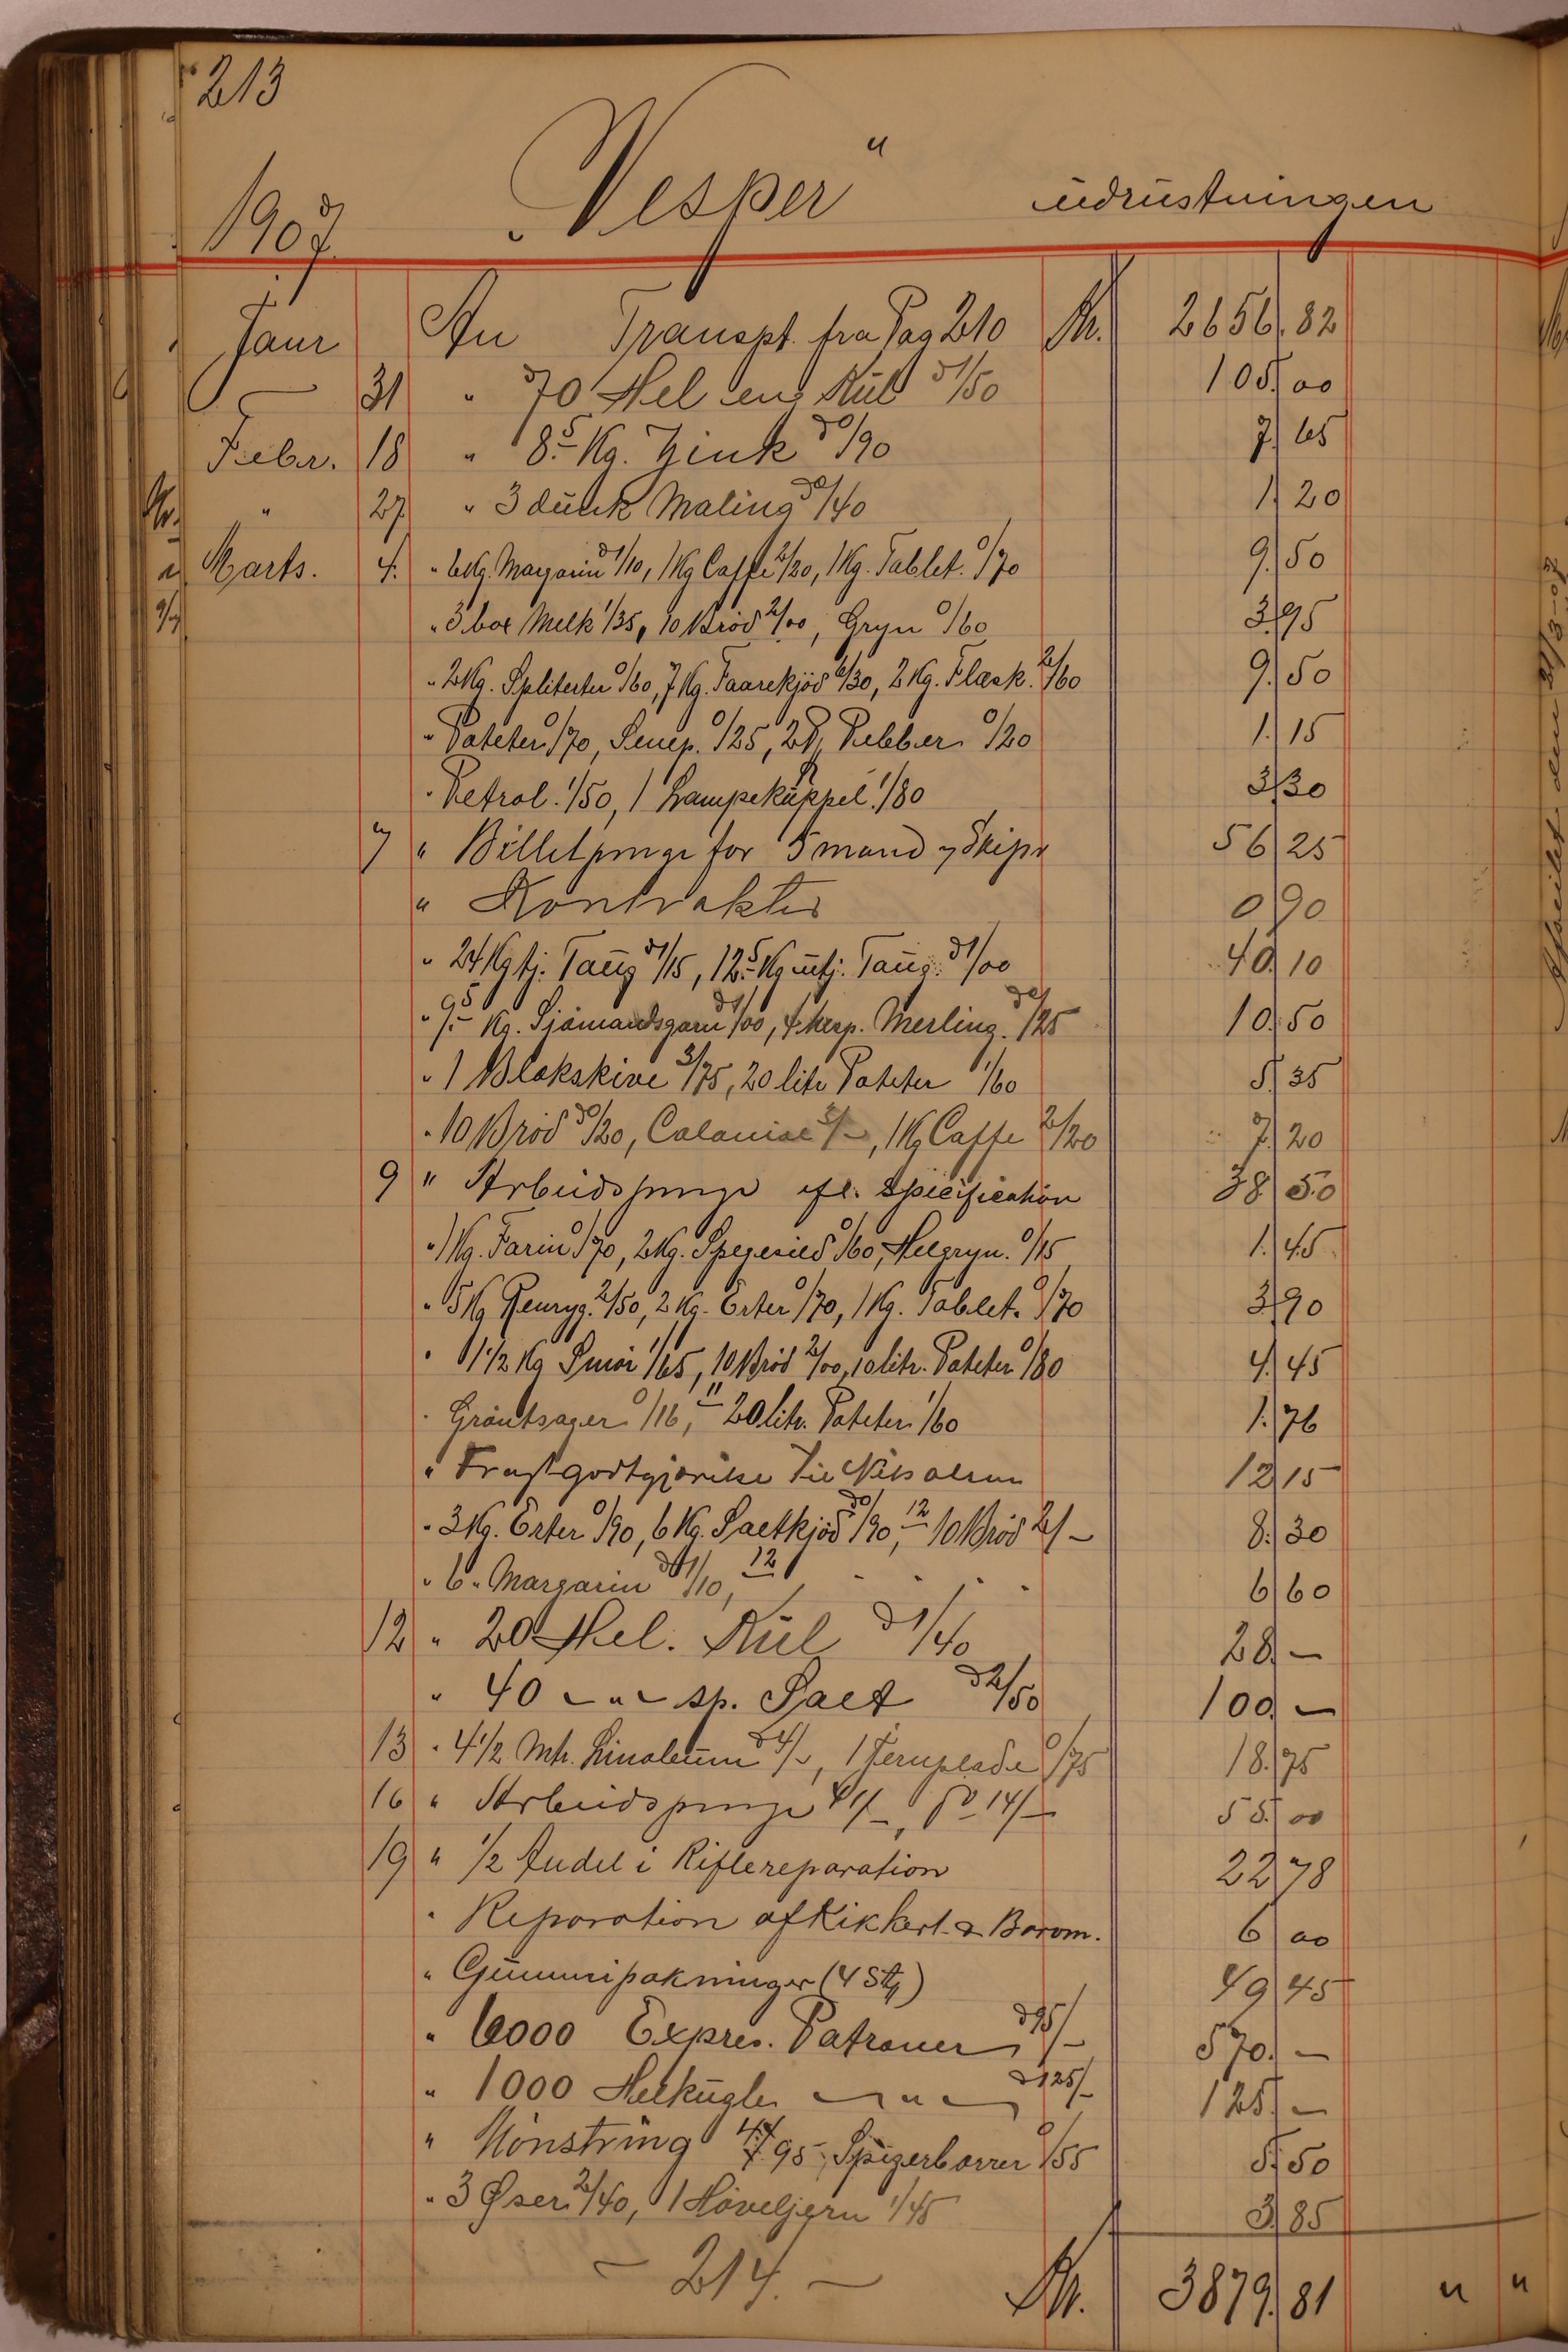 213
1907 "Vesper" udrustningen
Janr An Transpt. fra Pag 210 Kr. 2656.82
31 " 70 Hel eng Kul à 1/50 105.00
Febr. 18 " 8.5 Kg. Zink à 0/90 7.65
" 27 " 3 dunk Maling à 0/40 1.20
Marts. 4. " 6 Kg. Margarin à 1/10, 1 Kg Caffe 2/20, 1 Kg. Tablet. 0/70 9.50
" 3 box Melk 1/35, 10 Bröd 2/00, Gryn 0/60 3.95
" 2 Kg. Spliterter 0/60, 7 Kg. Faarekjöd 6/30, 2 Kg. Flæsk. 2/60 9.50
" Poteter 0/70, Senep. 0/25, 2 P. Pebber 0/20 1.15
" Petrol. 1/50, 1 Lampekuppel 1/80 3.30
7 " Billetpenge for 5 mand & Skipr 56 25
" Kontrakter 0 90
" 24 Kg tj. Taug à 1/15, 12.5 Kg utj. Taug. à 1/00 40.10
" 9.5 Kg. Sjömandsgarn à 1/00, 4 hesp. Merling. à 0/25 10.50
" 1 Blokskive 3/75, 20 litr Poteter 1/60 5.35
" 10 Bröd à 0/20, Colonial 3/-, 1 Kg Caffe 2/20 7.20
9 " Arbeidspenge efl. Specification 38 50
" 1 Kg. Farin 0/70, 2 Kg. Spegesild 0/60, Helgryn. 0/15 1.45
" 5 Kg Renryg. 2/50, 2 Kg. Erter 0/70, 1 Kg. Tablet. 0/70 3.90
" 1 1/2 Kg Smör 1/65, 10 Bröd 2/00, 10 litr. Poteter 0/80 4.45
" Gröntsager 0/16, 11 20 litr. Poteter 1/60 1.76
" Fragtgodtgjörelse til Nils Olsen 12 15
" 3 Kg. Erter 0/90, 6 Kg. Saltkjöd à 0/90, 12 10 Bröd 2/- 8.30
" 6 " Margarin à 1/10, 12 6 60
12 " 20 Hel. Kul à 1/40 28.-
" 40 - " - sp. Salt à 2/50 100.-
13 " 4 1/2 Mtr. Linoleum à 4/-, 1 Jernplade 0/75 18.75
16 " Arbeidspenge 41/-, Do 14/- 55.00
19 " 1/2 Andel i Riflereparation 22 78
" Reparation af Kikkert & Barom. 6 00
" Gummipakninger (4 Stk) 49 45
" 6000 Expres. Patroner à 95/- 570.-
" 1000 Helkugle - " - à 125/- 125.-
" Mönstring 4.95, Spigerborrer 0/55 5.50
" 3 Öser 2/40, 1 Höveljern 1/45 3.85
- 214. - Kr. 3879.81 " "